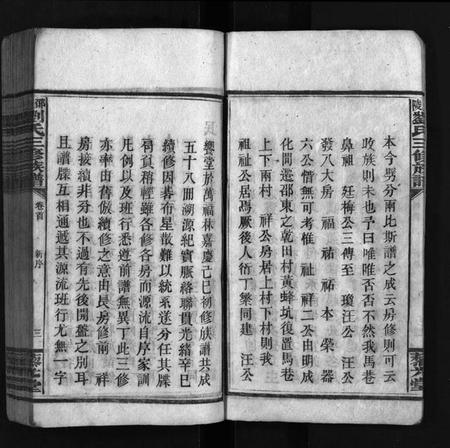 劉氏三修族譜
本今男分兩比斯譜之成云房修則可云
政族則未也予曰唯唯否否不然我馬巷
鼻祖　廷梅公三傳至　瓊汪公
發八大房　福　祐　祐　本　榮　器
六公偕無可考惟　社　祥二公由明成
化間遷邵東之乾田村黃蜂坑後置馬巷
上下兩村　祥公房居上村下村則我
祖社公居焉厥後人衍丁繁同建　汪公
享堂於萬福林嘉慶己巳初修族譜共成
五十八冊溯源紀實脈絡聯貫光緒辛巳
續修因碁布星散難以統系遂分任其牒
同頁稽輕雖各修各房而源流自序家訓
凡例以及班行悉遵前譜無異丁此三修
亦率由舊倣續修之意由長房修前　祥
房接續非分也不過有先後開盤之別耳
且譜牒互相通遞其源流班行尤無一字
劉氏三修族譜
卷首
新序
三